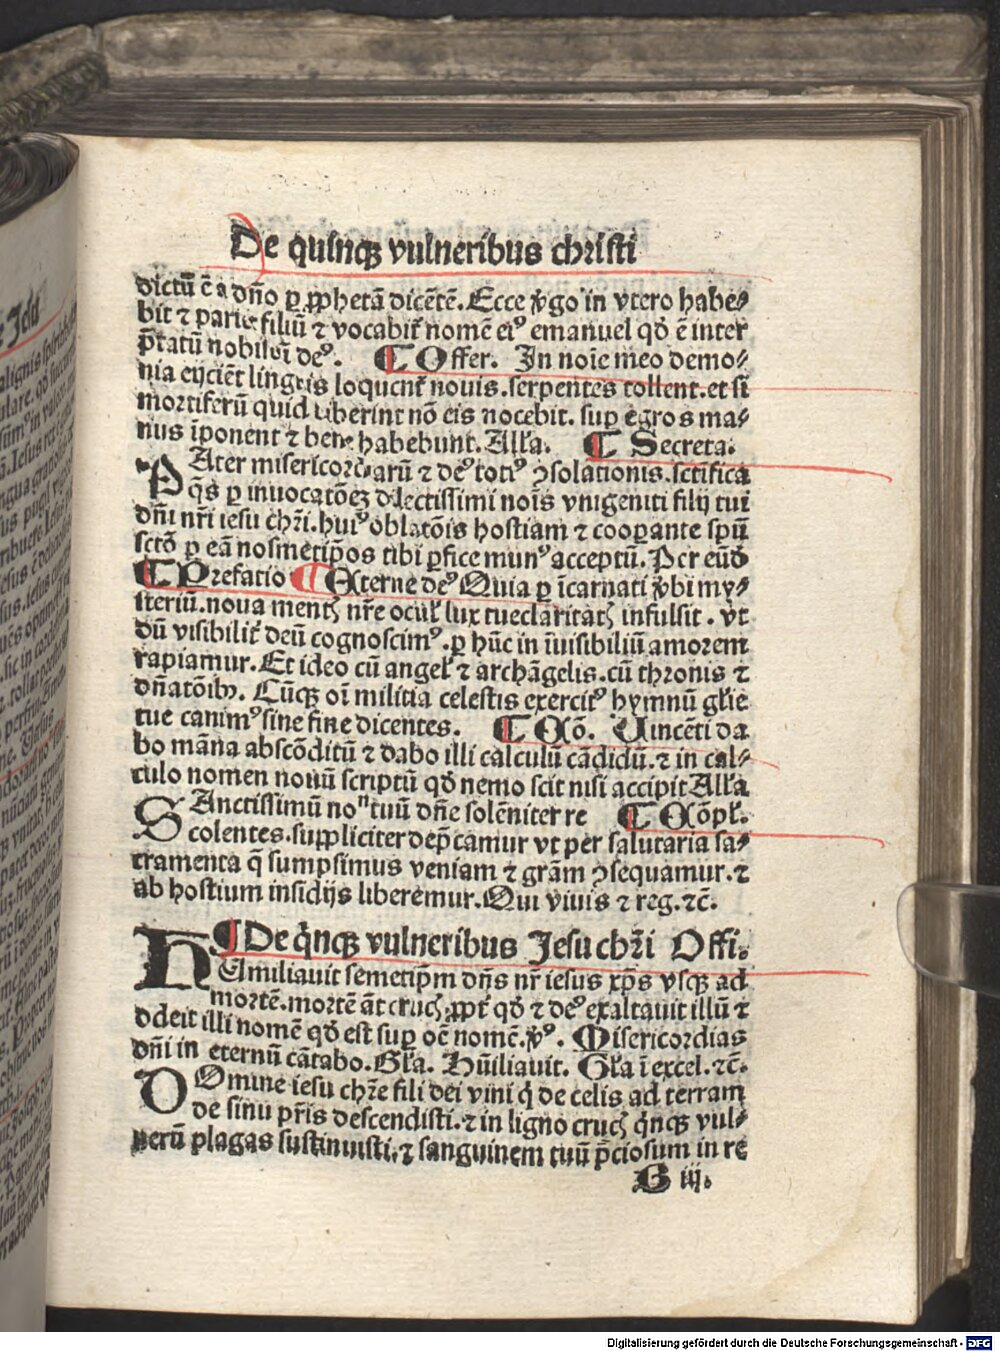 De quinqꝫ vulneribus christi
dictū ē a dn̄o ꝑ ꝓphetā dicētē. Ecce v̓go in vtero habe⸗
bit ⁊ pariet filiū ⁊ vocabit̉ nomē eiꝰ emanuel qđ ē inter
p̄tatū nobiscū deꝰ. ¶ Offer. In noīe meo demo⸗
nia eijciēt linguis loquent̉ nouis. serpentes tollent. et si
mortiferū quid biberint nō eis nocebit. suꝑ egros ma⸗
nus īponent ⁊ bene habebunt. All'a. ¶ Secreta.
PAter misericordiarū ⁊ deꝰ totiꝰ ↄsolationis. sctīfica
q̄s ꝑ inuocatōeꝫ dilectissimi noīs vnigeniti filij tui
dn̄i nr̄i iesu chr̄i. huiꝰ oblatōis hostiam ⁊ cooꝑante spū
sctō ꝑ eā nosmetip̄os tibi ꝑfice munꝰ acceptū. Per eūđ
¶ Prefatio ¶ Eterne deꝰ Quia ꝑ īcarnati v̓bi my⸗
sterium. noua mentꝭ nr̄e ocul' lux tue claritatꝭ infulsit. vt
dū visibilit̉ deū cognoscimꝰ. ꝑ hūc in īuisibiliū amorem
rapiamur. Et ideo cū angel' ⁊ archāgelis. cū thronis ⁊
dn̄atōibꝰ. Cūqꝫ oī militia celestis exercitꝰ hymnū gl'ie
tue canimꝰ sine fine dicentes. ¶ Cō. Uincēti da
bo māna abscōditū ⁊ dabo illi calculū cādidū. ⁊ in cal⸗
culo nomen nouū scriptū qđ nemo scit nisi accipit All'a
SAnctissimū noⁿ tuū dn̄e solēniter re ¶ Cōpl'.
colentes. suppliciter dep̄camur vt per salutaria sa⸗
cramenta q̄ sumpsimus veniam ⁊ grām ↄsequamur. ⁊
ab hostium insidijs liberemur. Qui viuis ⁊ reg. ⁊c̄.
¶ De q̇nqꝫ vulneribus Jesu chr̄i Offi.
HUmiliauit semetip̄m dn̄s nr̄ iesus xp̄s vsqꝫ ad
mortē. mortē āt crucꝭ. ꝓpt̉ qđ ⁊ deꝰ exaltauit illū ⁊
dedit illi nomē qđ est suꝑ oē nomē. v̓ꝰ. Misericordias
dn̄i in eternū cātabo. Gl'a. Hūiliauit. Gl'a ī excel. ⁊c̄.
DOmine iesu chr̄e fili dei viui q̇ de celis ad terram
de sinu pr̄is descendisti. ⁊ in ligno crucꝭ q̇nqꝫ vul⸗
nerū plagas sustinuisti. ⁊ sanguinem tuū p̄ciosum in re
G iij.
Digitalisierung gefördert durch die Deutsche Forschungsgemeinschaft - DFG